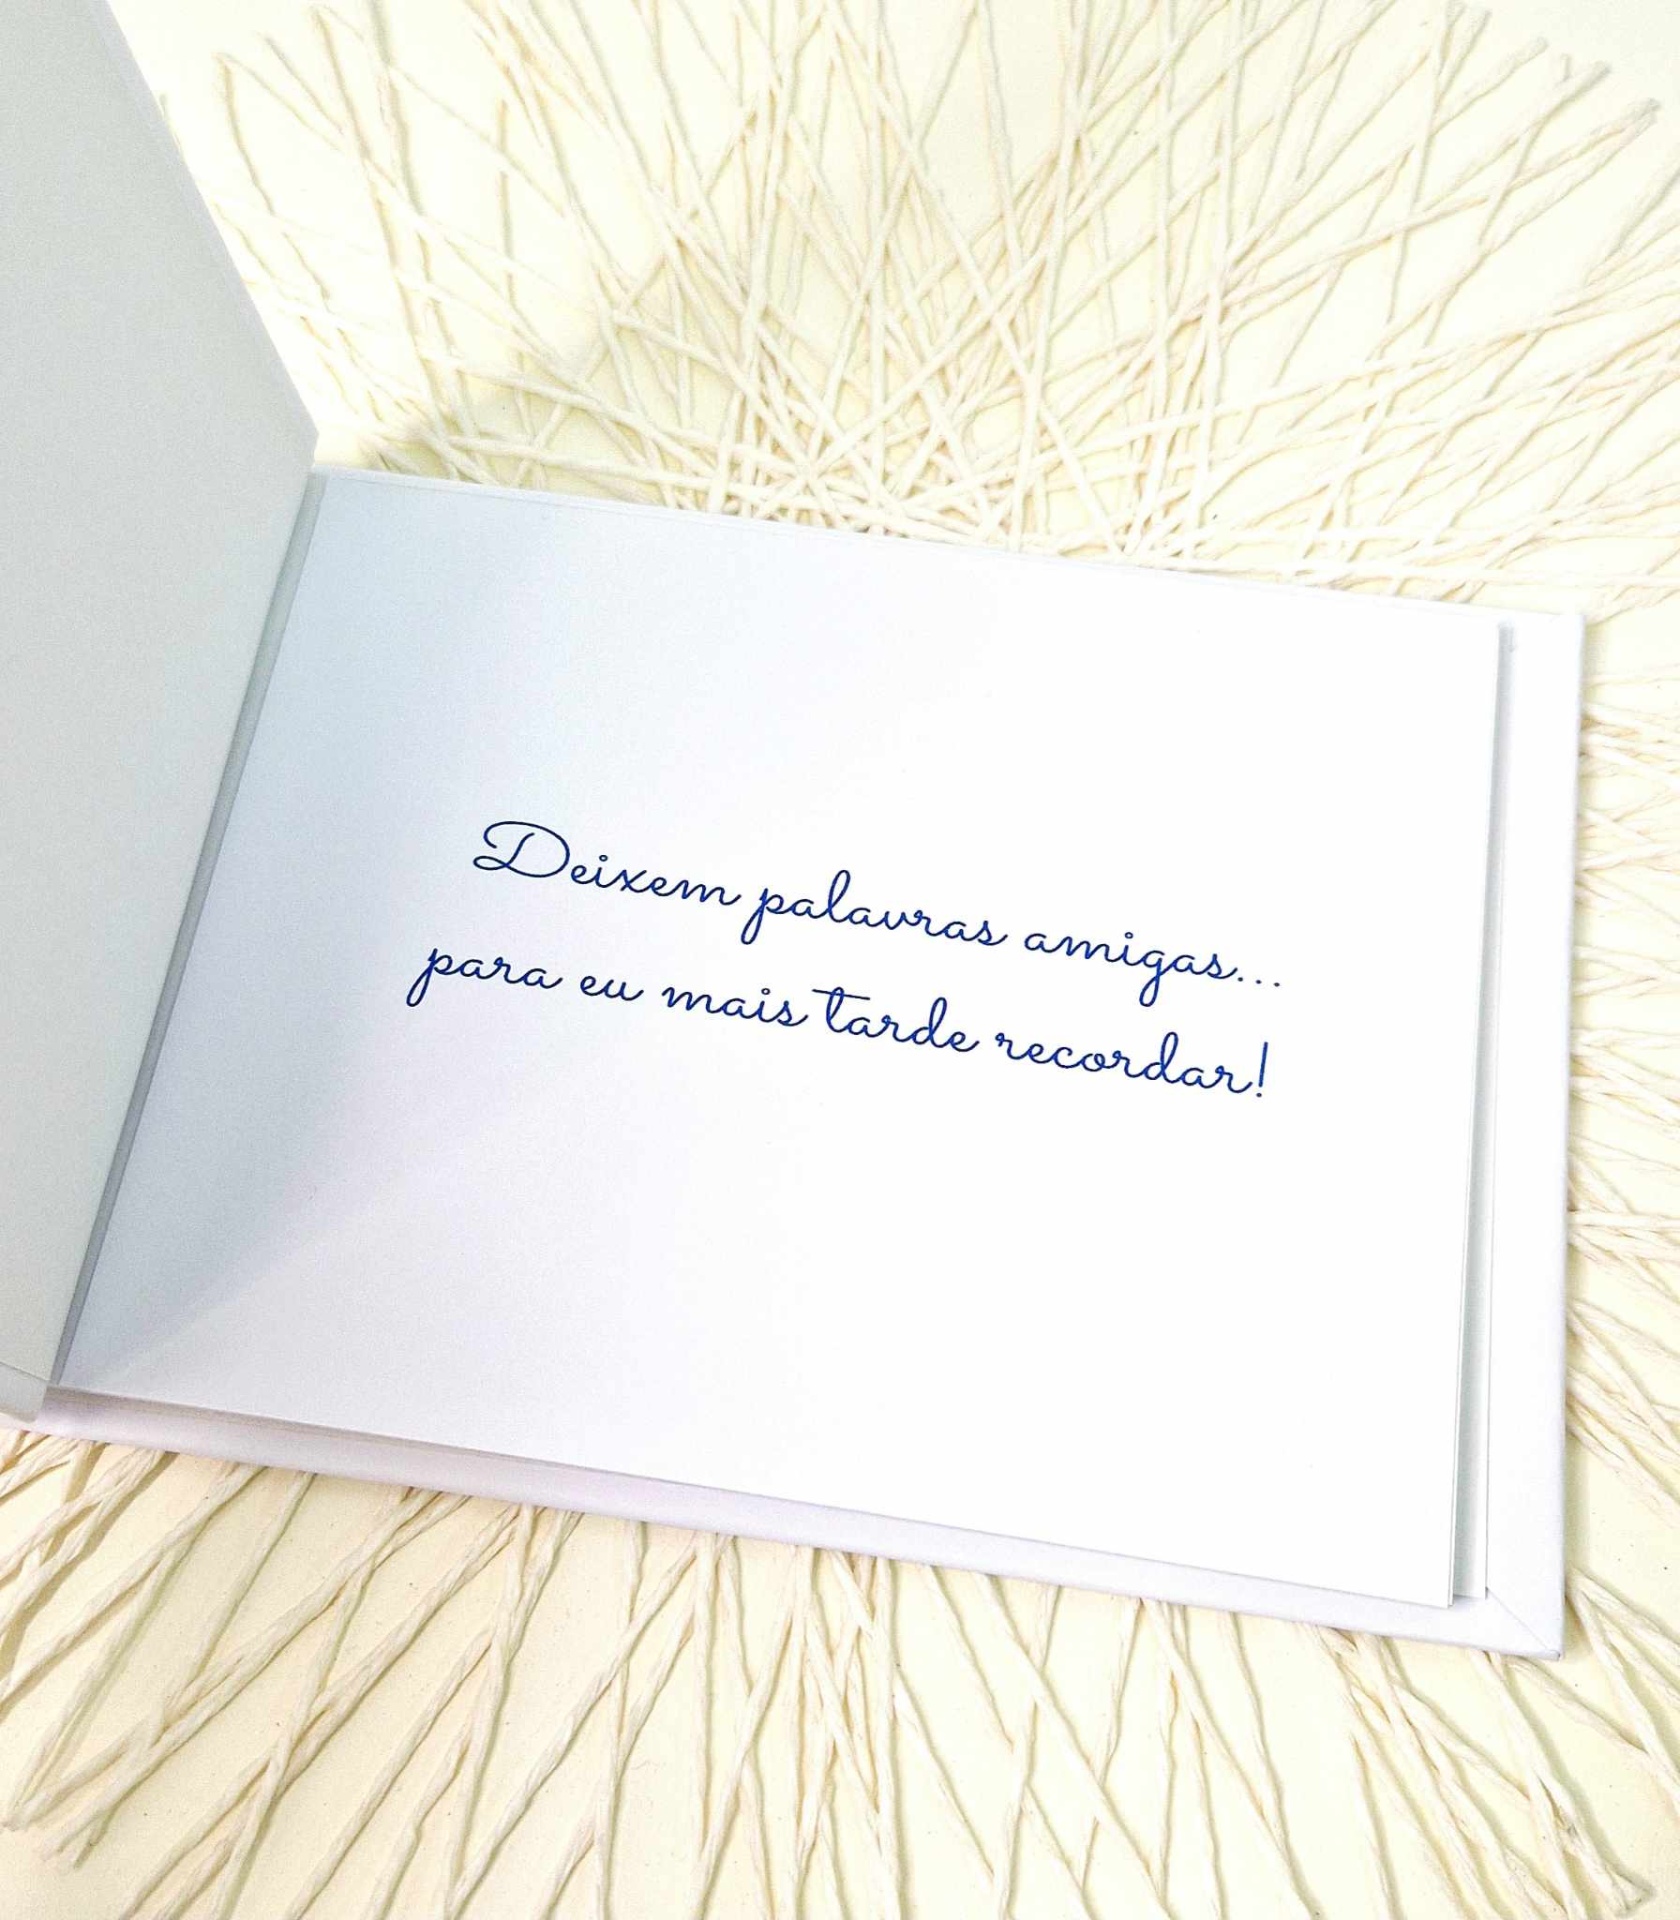 Deixem palavras amigas...
para eu mais tarde recordar!